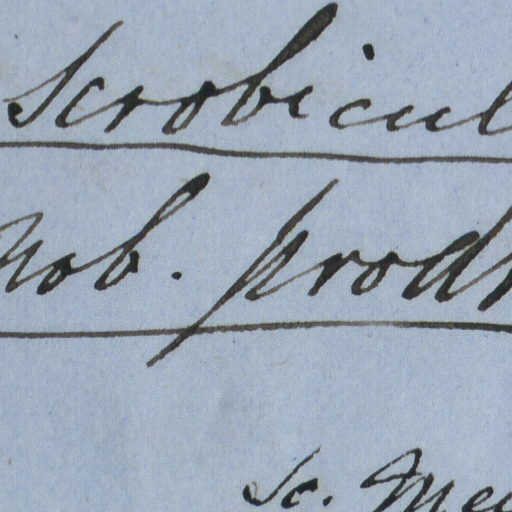 scrobicul
Nob. prodr
Sc. Mey